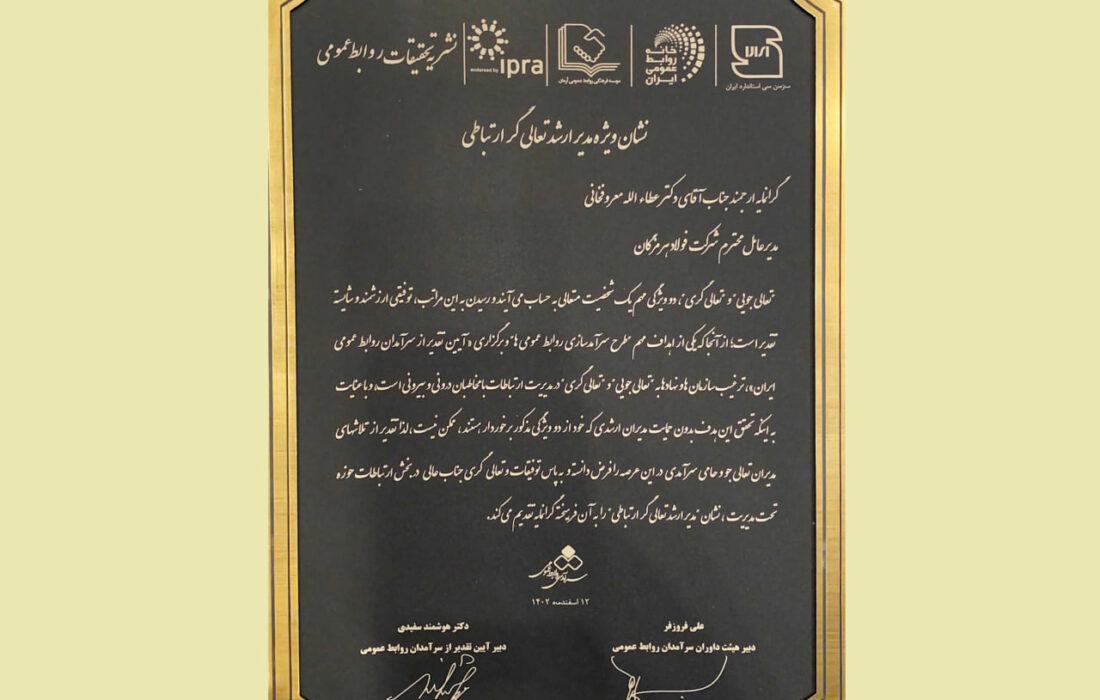 ایران
سرزمین سی استاندارد ایران
خانه
روابط
عمومی
ایران
موسسه فرهنگی روابط عمومی آرمان
endorsed by ipra
نشریه تحقیقات روابط عمومی
نشان ویژه مدیر ارشد تعالی گر ارتباطی
گرانمایه ارجمند جناب آقای دکتر عطاء الله معروفخانی
مدیرعامل محترم شرکت فولاد هرمزگان
"تعالی جویی" و "تعالی گری"، دو ویژگی مهم یک شخصیت متعالی به حساب می آیند و رسیدن به این مراتب، توفیقی ارزشمند و شایسته
تقدیر است؛ از آنجا که یکی از اهداف مهم "طرح سرآمدسازی روابط عمومی ها" و برگزاری «آیین تقدیر از سرآمدان روابط عمومی
ایران»، ترغیب سازمان ها و نهادها به "تعالی جویی" و "تعالی گری" در مدیریت ارتباطات با مخاطبان درونی و بیرونی است، و با عنایت
به اینکه تحقق این هدف بدون حمایت مدیران ارشدی که خود از دو ویژگی مذکور برخوردار هستند، ممکن نیست، لذا تقدیر از تلاشهای
مدیران تعالی جو و حامی سرآمدی در این عرصه را فرض دانسته و به پاس توفیقات و تعالی گری جناب عالی در بخش ارتباطات حوزه
تحت مدیریت، نشان "مدیر ارشد تعالی گر ارتباطی" را به آن فرهیخته گرانمایه تقدیم می کند.
۱۲ اسفندماه ۱۴۰۲
علی فروزفر
دبیر هیئت داوران سرآمدان روابط عمومی
دکتر هوشمند سفیدی
دبیر آیین تقدیر از سرآمدان روابط عمومی